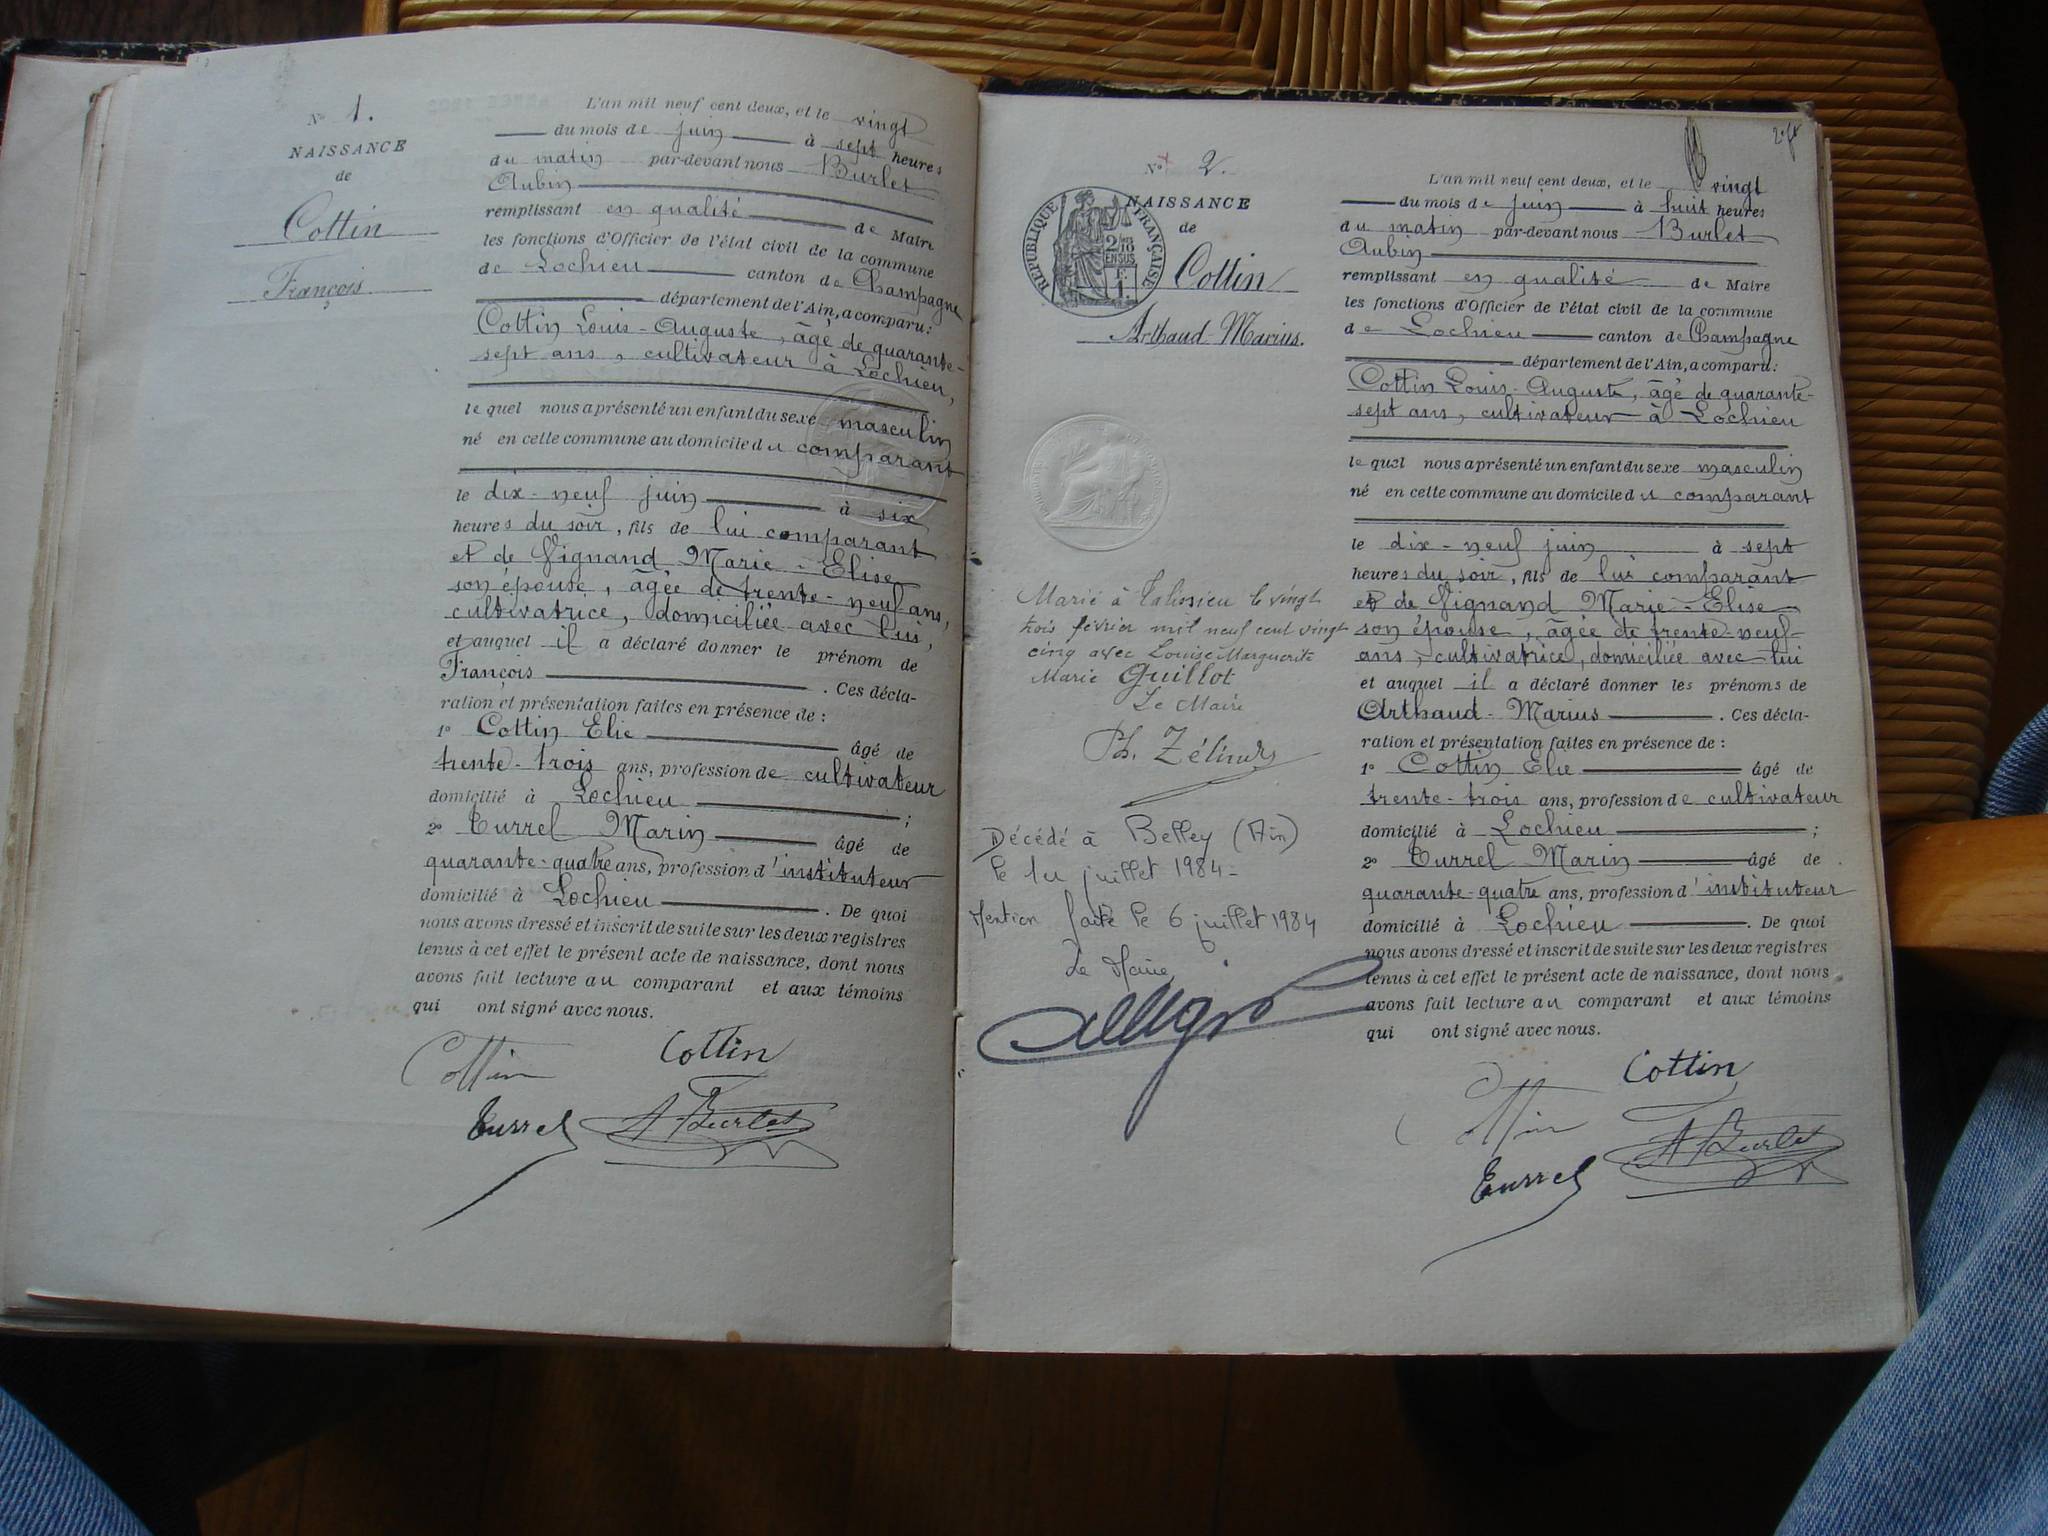 N° 1.
NAISSANCE
de
Cottin
François
L'an mil neuf cent deux, et le vingt
du mois de juin à sept heures
du matin par-devant nous Burlet
Aubin
remplissant en qualité de Maire
les fonctions d'Officier de l'état civil de la commune
de Lochieu canton de Champagne
département de l'Ain, a comparu:
Cottin Louis-Auguste, âgé de quarante-
sept ans, cultivateur à Lochieu,
le quel nous a présenté un enfant du sexe masculin
né en cette commune au domicile du comparant
le dix-neuf juin à six
heures du soir, fils de lui comparant
et de Vignand Marie-Elise
son épouse, âgée de trente-neuf ans,
cultivatrice, domiciliée avec lui,
et auquel il a déclaré donner le prénom de
François. Ces décla-
ration et présentation faites en présence de :
1° Cottin Elie âgé de
trente-trois ans, profession de cultivateur
domicilié à Lochieu ;
2° Turrel Marin âgé de
quarante-quatre ans, profession d'instituteur
domicilié à Lochieu. De quoi
nous avons dressé et inscrit de suite sur les deux registres
tenus à cet effet le présent acte de naissance, dont nous
avons fait lecture au comparant et aux témoins
qui ont signé avec nous.
Cottin Cottin
Turrel A Burlet
2
N° 2.
NAISSANCE
de
Cottin
Arthaud-Marius.
RÉPUBLIQUE FRANÇAISE
2/10
EN SUS
Marié à Talissieu le vingt
trois février mil neuf cent vingt
cinq avec Louise Marguerite
Marie Guillot
Le Maire
Décédé à Belley (Ain)
le 1er juillet 1984-
Mention faite le 6 juillet 1984
Le Maire
L'an mil neuf cent deux, et le vingt
du mois de juin à huit heures
du matin par-devant nous Burlet
Aubin
remplissant en qualité de Maire
les fonctions d'Officier de l'état civil de la commune
de Lochieu canton de Champagne
département de l'Ain, a comparu:
Cottin Louis-Auguste, âgé de quarante-
sept ans, cultivateur à Lochieu
le quel nous a présenté un enfant du sexe masculin
né en cette commune au domicile du comparant
le dix-neuf juin à sept
heures du soir, fils de lui comparant
et de Vignand Marie-Elise
son épouse, âgée de trente-neuf-
ans, cultivatrice, domiciliée avec lui
et auquel il a déclaré donner les prénoms de
Arthaud-Marius. Ces décla-
ration et présentation faites en présence de :
1° Cottin Elie âgé de
trente-trois ans, profession de cultivateur
domicilié à Lochieu ;
2° Turrel Marin âgé de
quarante-quatre ans, profession d'instituteur
domicilié à Lochieu. De quoi
nous avons dressé et inscrit de suite sur les deux registres
tenus à cet effet le présent acte de naissance, dont nous
avons fait lecture au comparant et aux témoins
qui ont signé avec nous.
Cottin Cottin
Turrel A Burlet